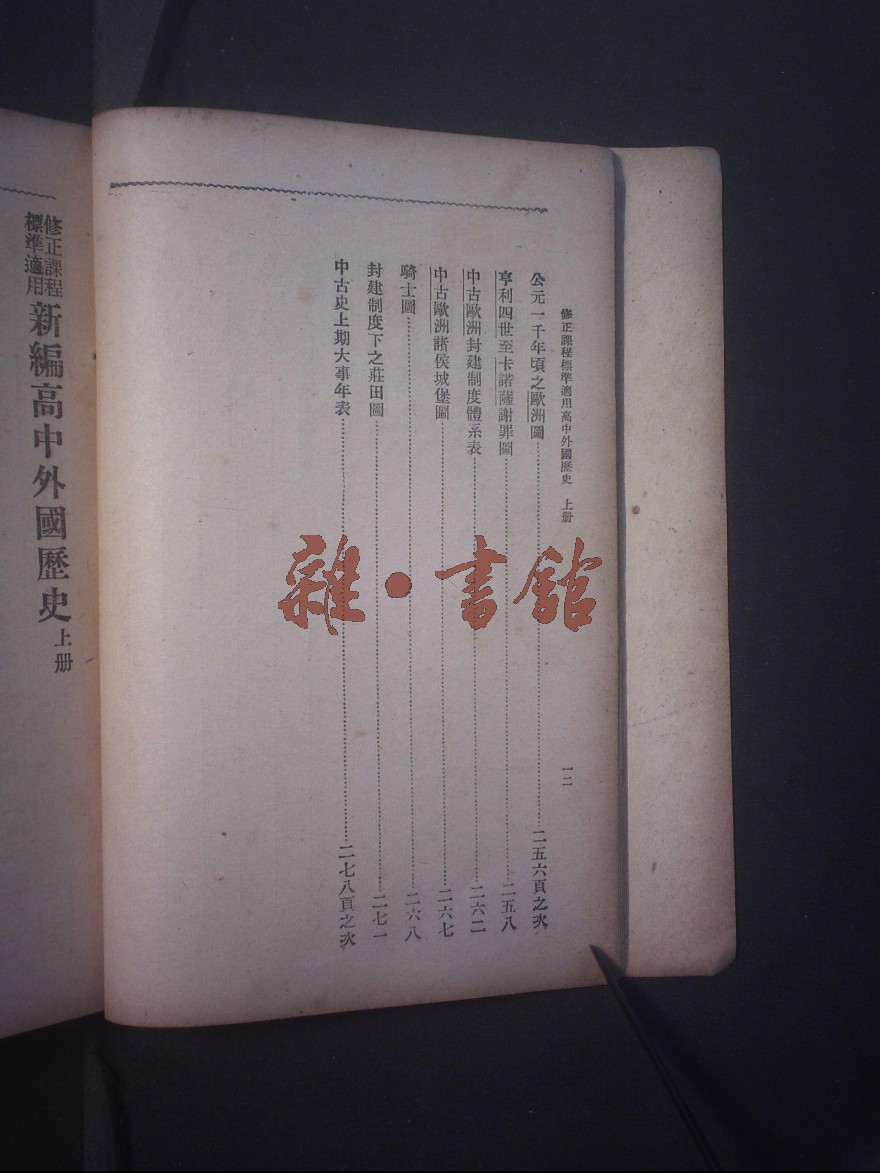 修正課程標準適用高中外國歷史　上册
一二
公元一千年頃之歐洲圖……二五六頁之次
亨利四世至卡諾薩謝罪圖……二五八
中古歐洲封建制度體系表……二六二
中古歐洲諸侯城堡圖……二六七
騎士圖……二六八
封建制度下之莊田圖……二七一
中古史上期大事年表……二七八頁之次
修正課程
標準適用
新編高中外國歷史上册
雜·書館